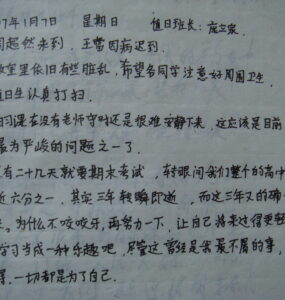 07年1月7日 星期日 值日班长:庞立家
周超然未到,王雪因病迟到.
教室里依旧有些脏乱,希望各同学注意好周围卫生
值日生认真打扫.
自习课在没有老师守时还是很难安静下来,这应该是目前
最为严峻的问题之一了.
有二十几天就要期末考试,转眼间我们整个的高中
近六分之一.其实三年转瞬即逝,而这三年又的确
为什么不咬咬牙,再努力一下,让自己将来过得更
学习当成一种乐趣吧,尽管这曾经是余最不屑的事,
一切都是为了自己.